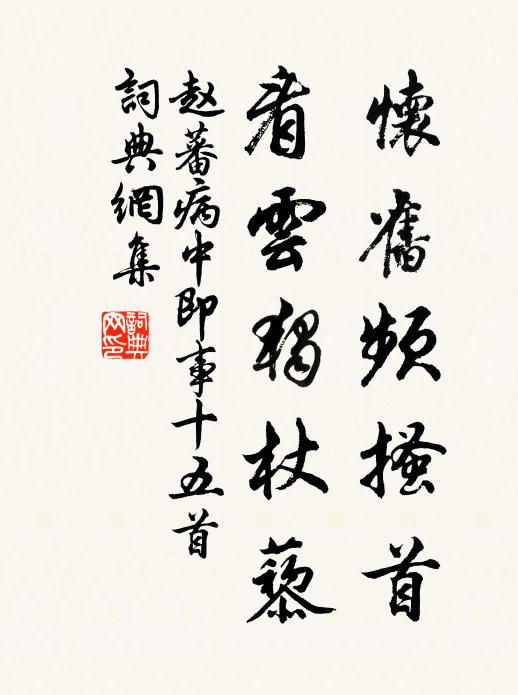 懷舊頻搔首
看雲獨杖藜
赵蕃病中即事十五首
詞典網集
詞典網印